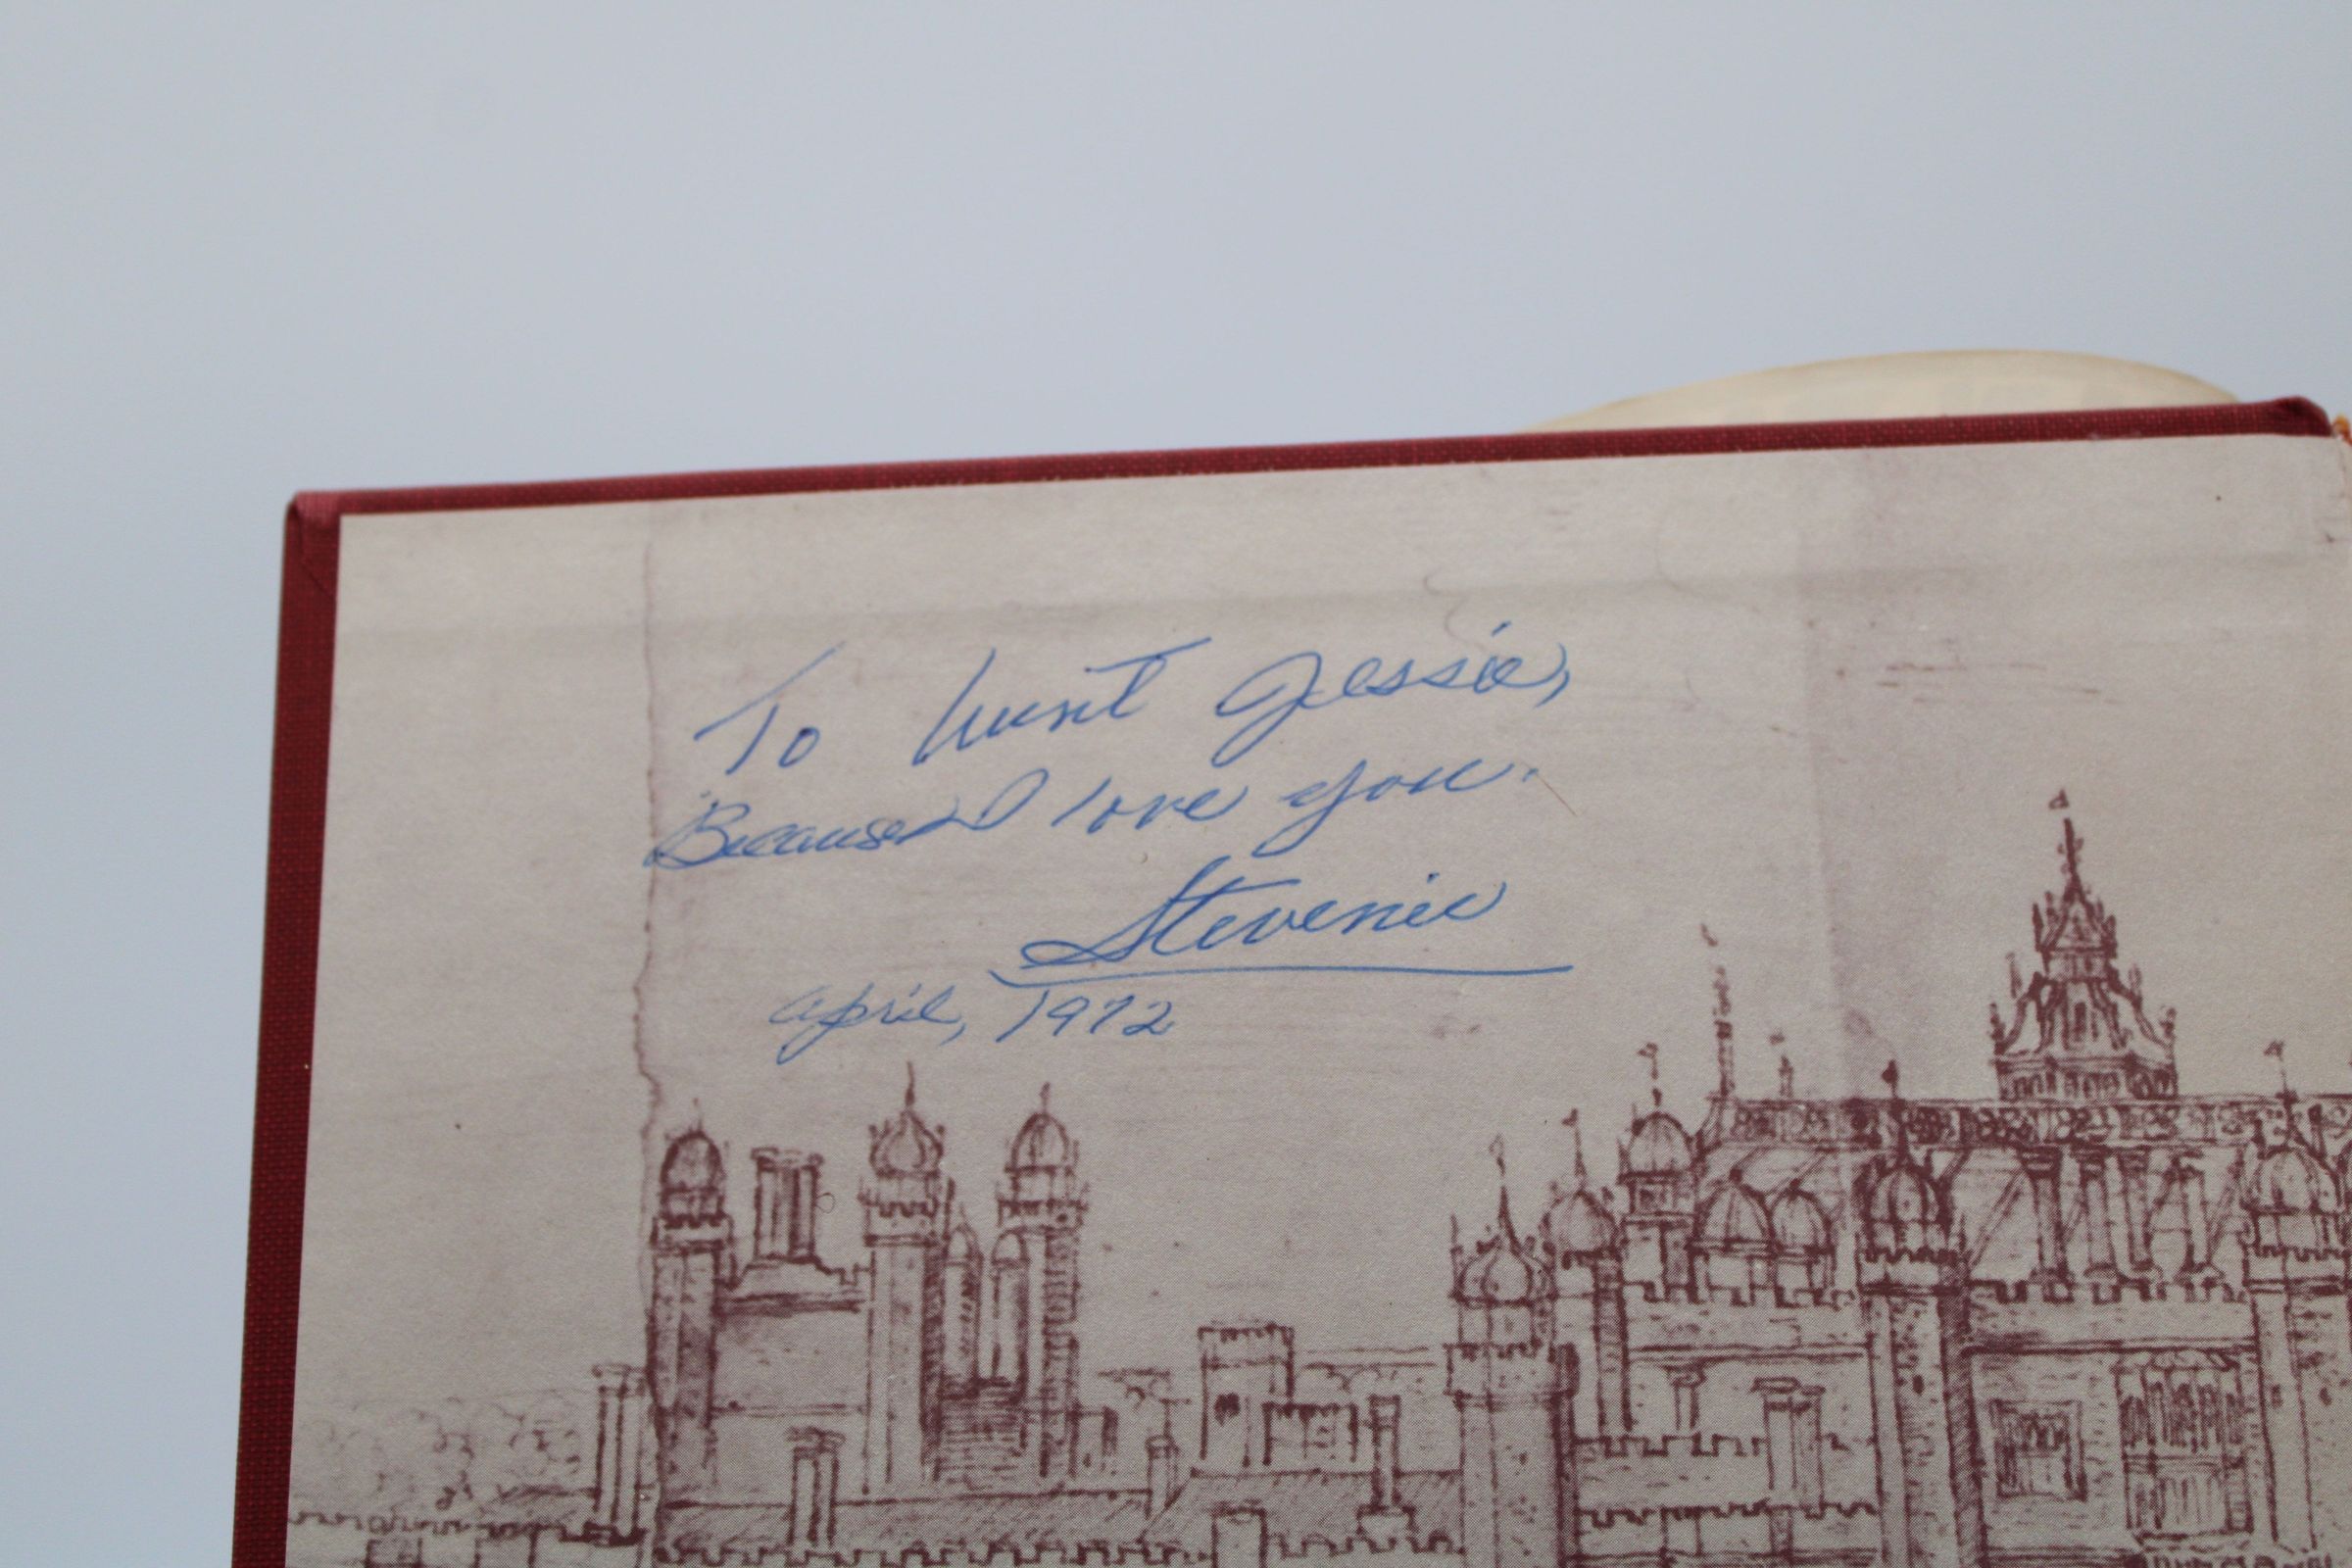 To Aunt Jessie,
Because I love you.
Stevenie
April, 1972